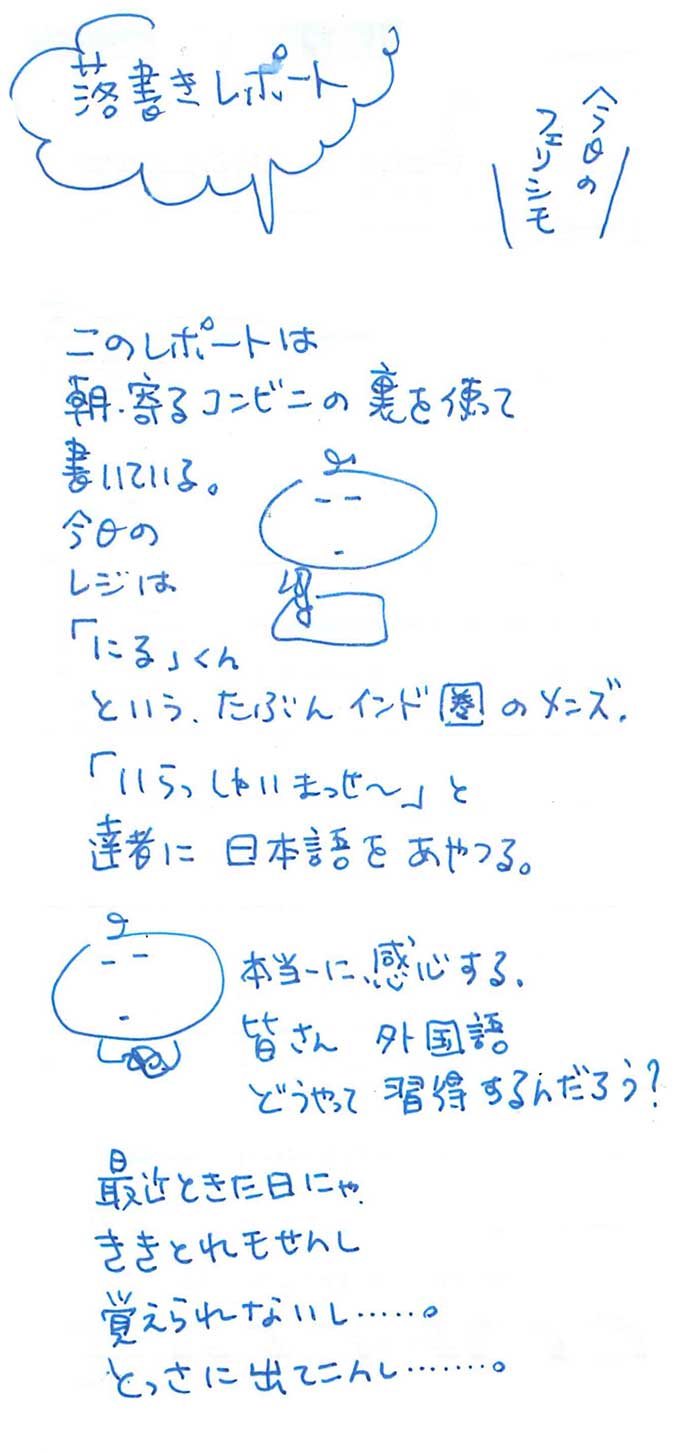 落書きレポート
今日の
フェリシモ
このレポートは
朝、寄るコンビニの裏を使って
書いている。
今日の
レジは
「にる」くん
という、たぶんインド圏のメンズ。
「いらっしゃいまっせ〜」と
達者に日本語をあやつる。
本当ーに、感心する。
皆さん 外国語
どうやって習得するんだろう?
最近ときた日にゃ
ききとれもせんし
覚えられないし……。
とっさに出てこんし………。